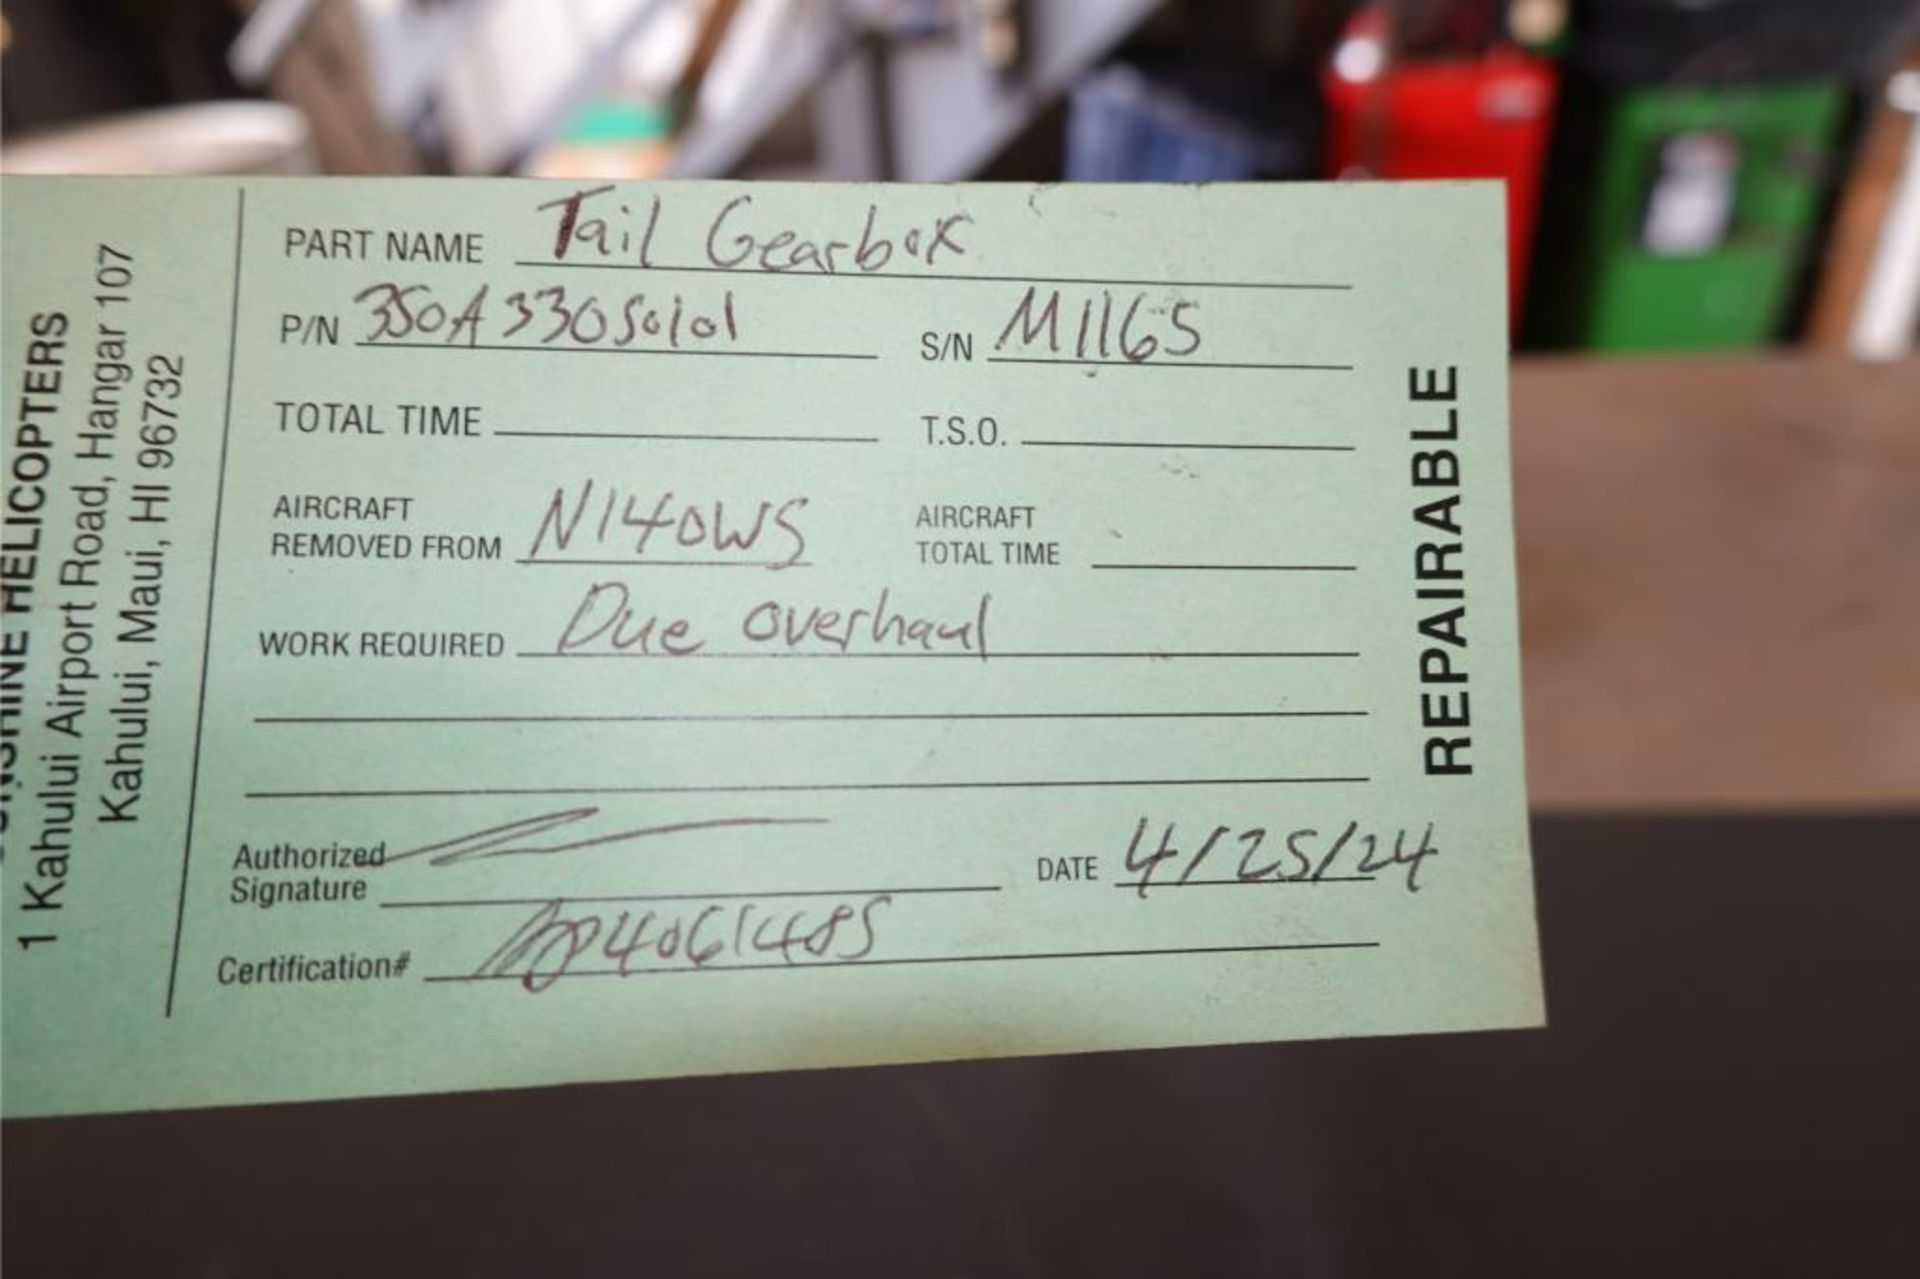 HELICOPTERS
1 Kahului Airport Road, Hangar 107
Kahului, Maui, HI 96732
PART NAME Tail Gearbox
P/N 350A33050101 S/N M1165
TOTAL TIME T.S.O.
AIRCRAFT REMOVED FROM N140WS AIRCRAFT TOTAL TIME
WORK REQUIRED Due overhaul
Authorized Signature DATE 4/25/24
Certification# AP4061485
REPAIRABLE